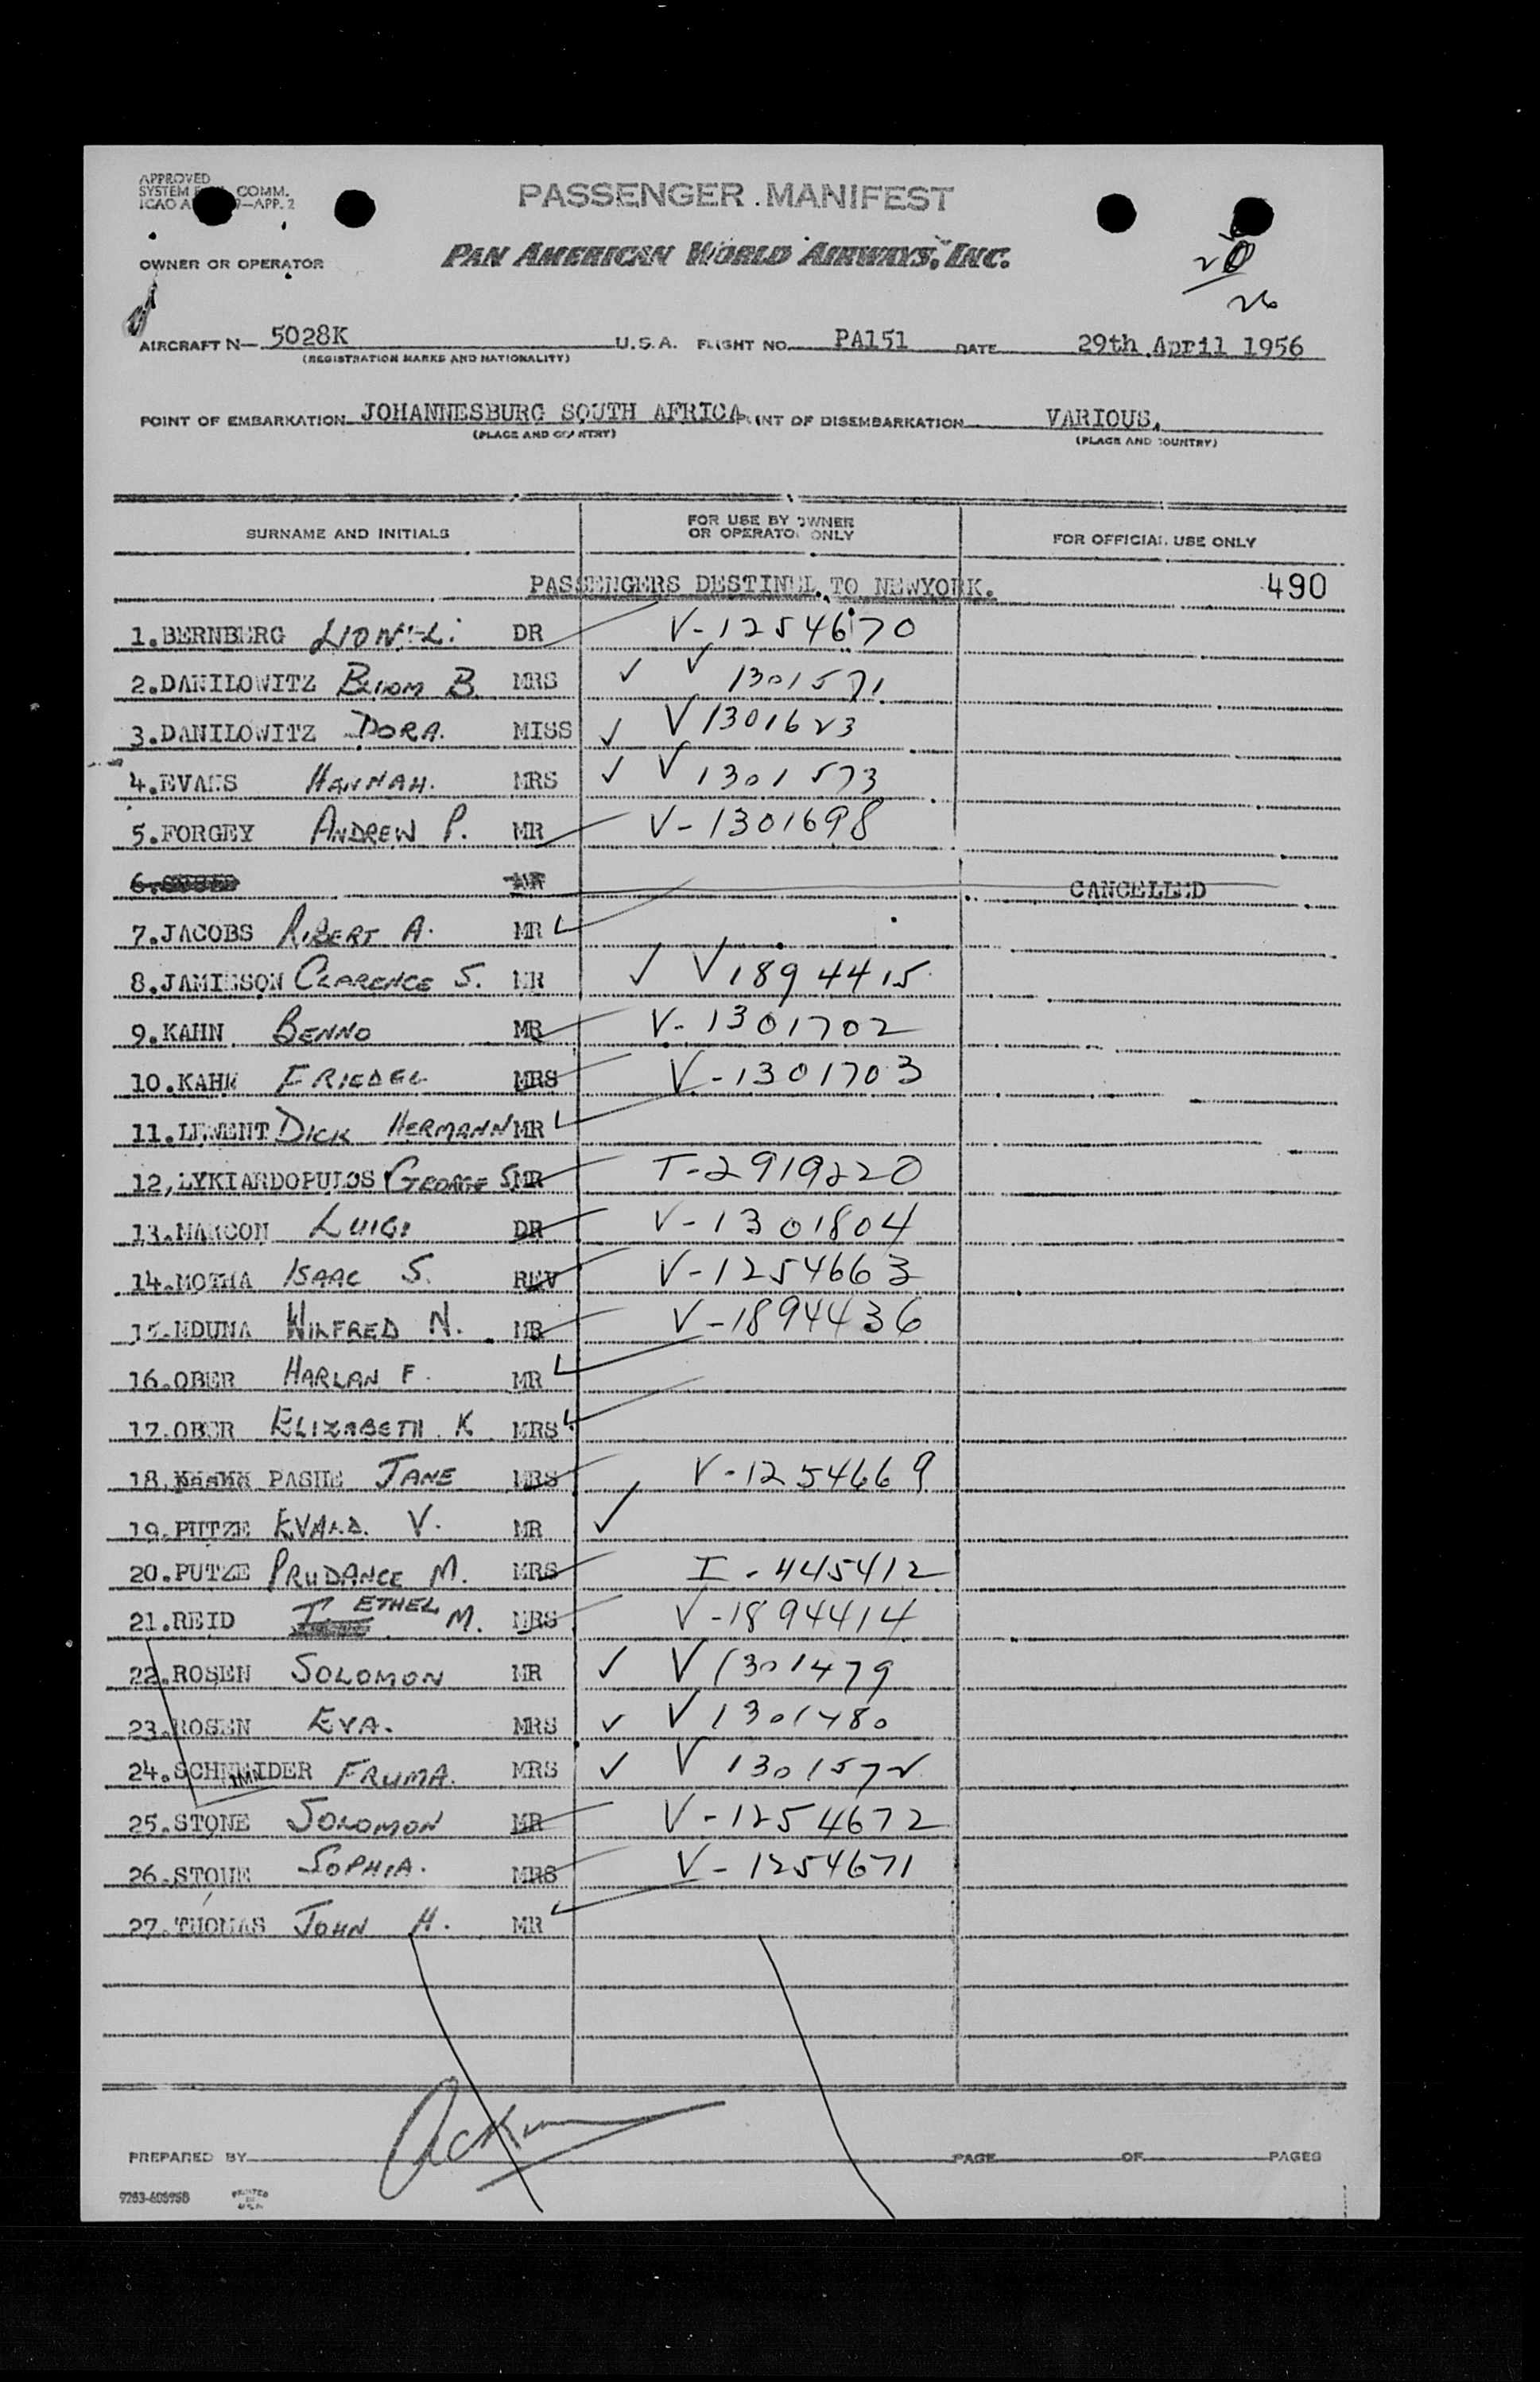 APPROVED
SYSTEM COMM.
ICAO A 9—APP. 2
PASSENGER MANIFEST
OWNER OR OPERATOR
PAN AMERICAN WORLD AIRWAYS, INC.
20
26
AIRCRAFT N— 5028K U.S.A. FLIGHT NO. PA151 DATE 29th April 1956
(REGISTRATION MARKS AND NATIONALITY)
POINT OF EMBARKATION JOHANNESBURG SOUTH AFRICA POINT OF DISEMBARKATION VARIOUS.
(PLACE AND COUNTRY) (PLACE AND COUNTRY)
SURNAME AND INITIALS FOR USE BY OWNER OR OPERATOR ONLY FOR OFFICIAL USE ONLY
PASSENGERS DESTINED TO NEWYORK. 490
1.BERNBERG LIONEL. DR V-1254670
2.DANILOWITZ BLUOM B. MRS ✓ V 1301571
3.DANILOWITZ DORA. MISS ✓ V 1301623
4.EVANS HANNAH. MRS ✓ V 1301573
5.FORGEY ANDREW P. MR V-1301698
6. MR CANCELLED
7.JACOBS ROBERT A. MR
8.JAMIESON CLARENCE S. MR ✓ V 1894415
9.KAHN BENNO MR V-1301702
10.KAHN FRIEDEL MRS V-1301703
11.LEMENT DICK HERMANN MR
12,LYKIARDOPULOS GEORGE S. MR T-2919220
13.MARCON LUIGI DR V-1301804
14.MOTHA ISAAC S. REV V-1254663
15.NDUNA WILFRED N. MR V-1894436
16.OBER HARLAN F. MR
17.OBER ELIZABETH K MRS
18. PASHE JANE MRS V-1254669
19.PUTZE EVALD. V. MR ✓
20.PUTZE PRUDANCE M. MRS I-445412
21.REID I. ETHEL M. MRS V-1894414
22.ROSEN SOLOMON MR ✓ V 1301479
23.ROSEN EVA. MRS ✓ V 1301480
24.SCHNEIDER FRUMA. MRS ✓ V 1301572
25.STONE SOLOMON MR V-1254672
26.STONE SOPHIA. MRS V-1254671
27.THOMAS JOHN H. MR
PREPARED BY PAGE OF PAGES
PRINTED
IN
U.S.A.